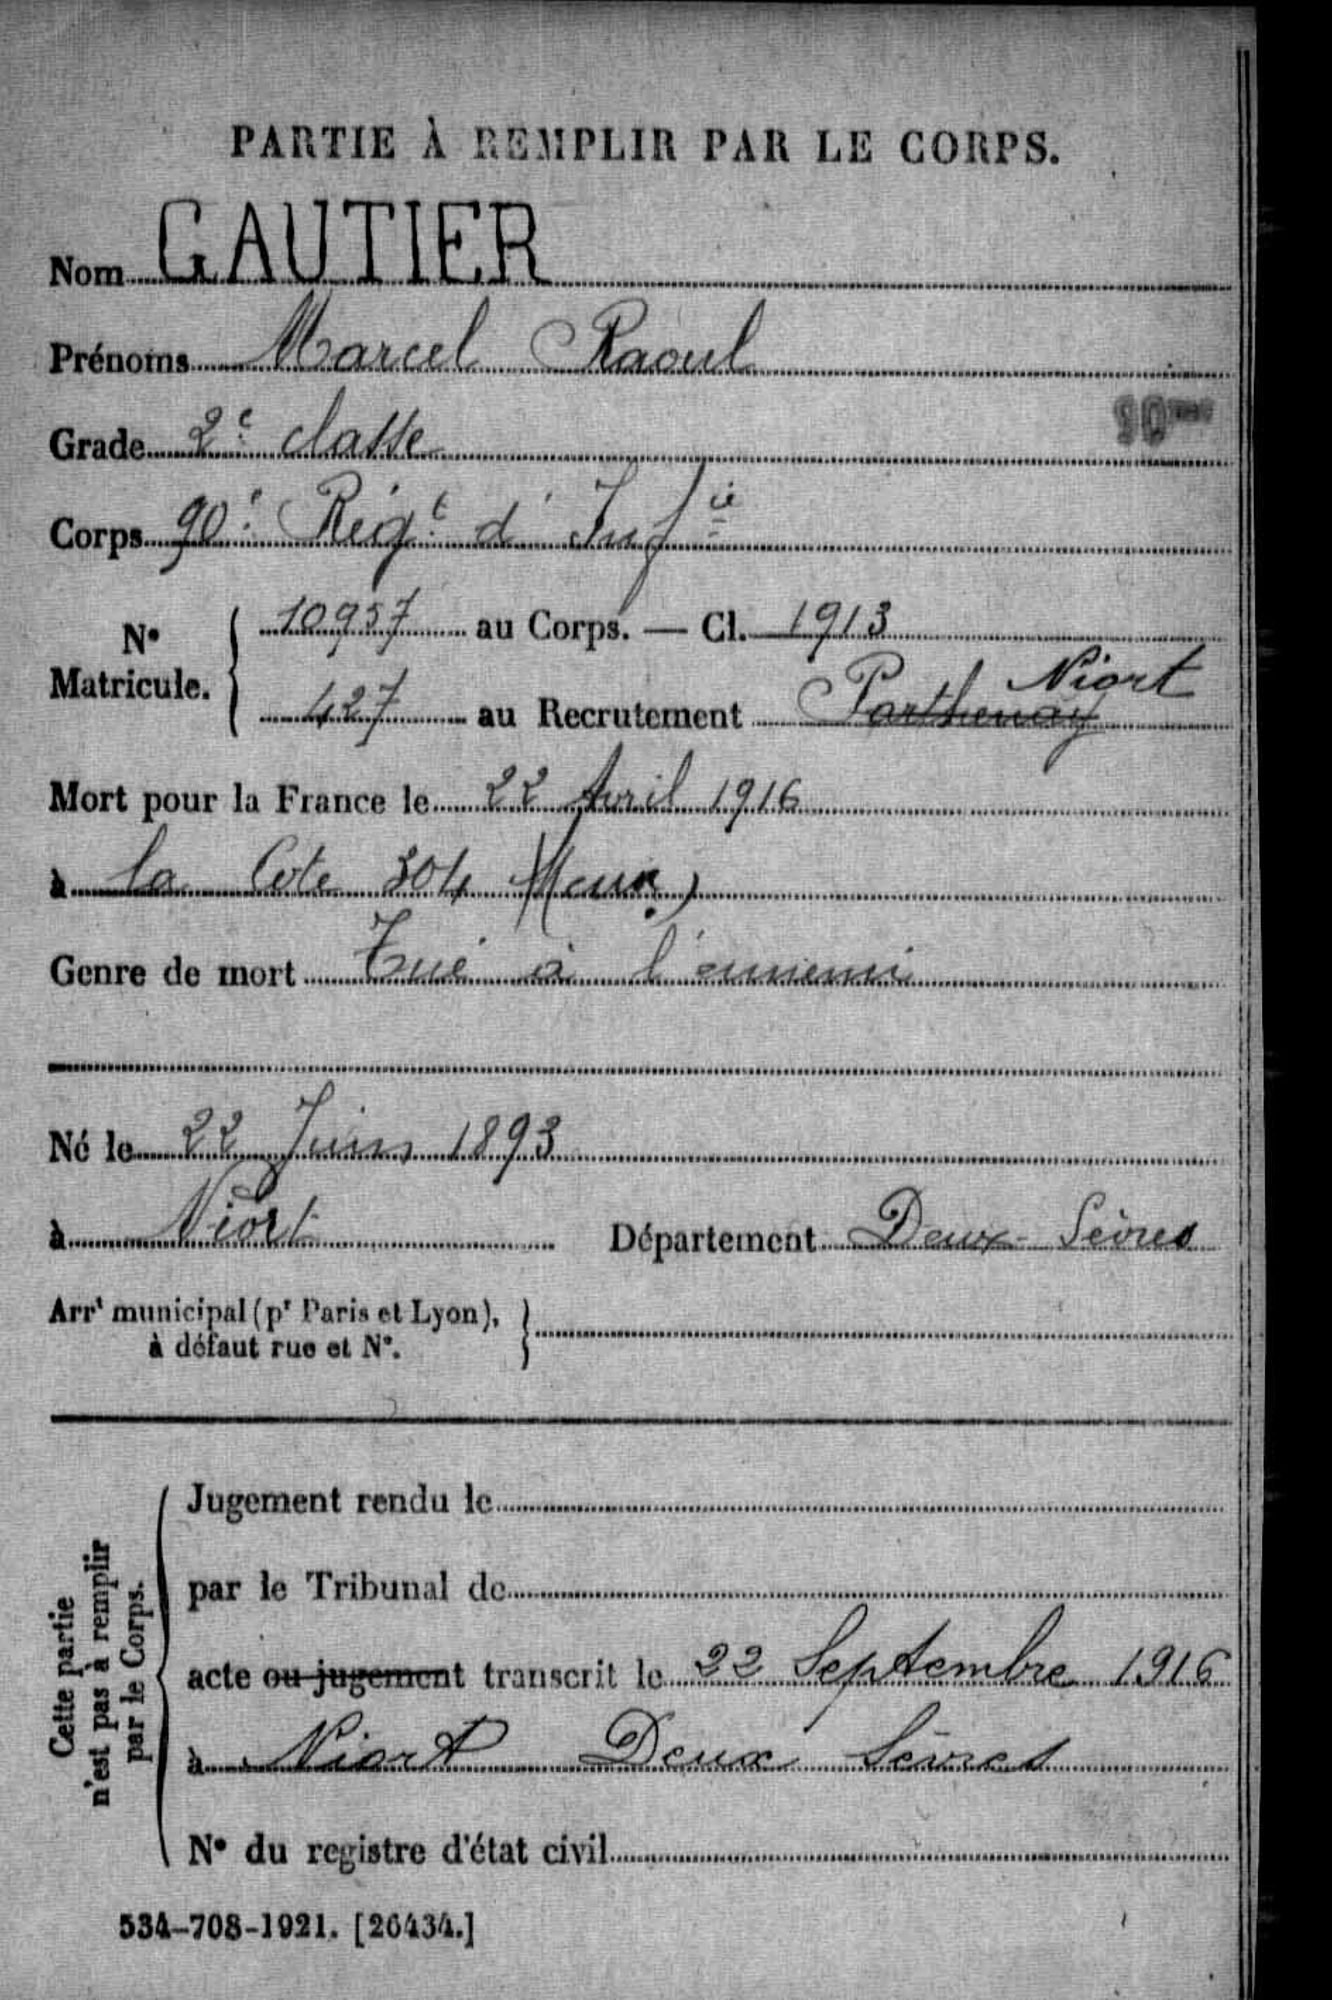 PARTIE À REMPLIR PAR LE CORPS.
Nom GAUTIER
Prénoms Marcel Raoul
90me
Grade 2e classe
Corps 90e Régt d'Infie
N° Matricule. 10957 au Corps. — Cl. 1913
427 au Recrutement Parthenay Niort
Mort pour la France le 22 Avril 1916
à la Cote 304 (Meuse)
Genre de mort Tué à l'ennemi
Né le 22 Juin 1893
à Niort Département Deux-Sèvres
Arrt municipal (pr Paris et Lyon),
à défaut rue et N°.
Cette partie
n'est pas à remplir
par le Corps.
Jugement rendu le
par le Tribunal de
acte ou jugement transcrit le 22 Septembre 1916
à Niort Deux Sèvres
N° du registre d'état civil
534-708-1921. [26434.]